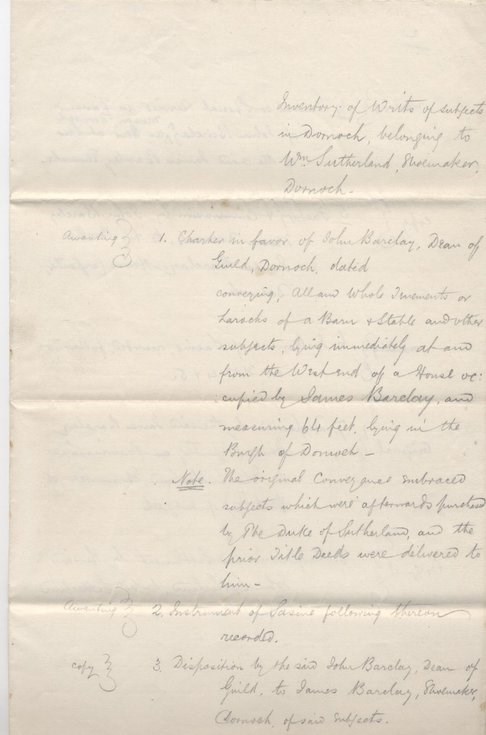 Inventory of Writs of subjects
in Dornoch, belonging to
Wm Sutherland, Shoemaker,
Dornoch.
Awanting 1. Charter in favor of John Barclay, Dean of
Guild, Dornoch, dated
conveying, All and Whole Tenements or
Larochs of a Barn & Stable and other
subjects, lying immediately at and
from the West end of a House oc:
cupied by James Barclay, and
measuring 64 feet, lying in the
Burgh of Dornoch –
Note. The original Conveyance embraced
subjects which were afterwards purchased
by The Duke of Sutherland, and the
prior Title Deeds were delivered to
him –
Awanting 2. Instrument of Sasine following thereon
recorded.
copy 3. Disposition by the said John Barclay, Dean of
Guild, to James Barclay, Shoemaker,
Dornoch, of said subjects.